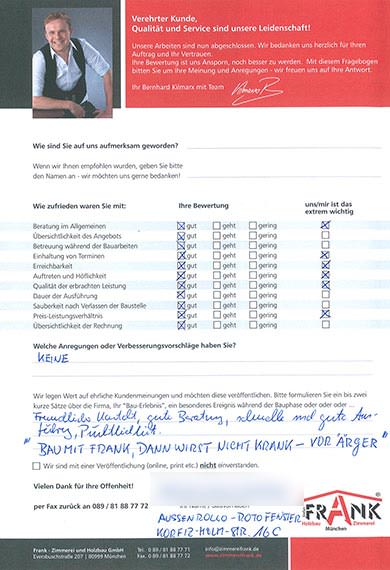 Verehrter Kunde,
Qualität und Service sind unsere Leidenschaft!
Unsere Arbeiten sind nun abgeschlossen. Wir bedanken uns herzlich für Ihren
Auftrag und Ihr Vertrauen.
Ihre Bewertung ist uns Ansporn, noch besser zu werden. Mit diesem Fragebogen
bitten Sie um Ihre Meinung und Anregungen - wir freuen uns auf Ihre Antwort.
Ihr Bernhard Kilmarx mit Team
Wie sind Sie auf uns aufmerksam geworden?
Wenn wir Ihnen empfohlen wurden, geben Sie bitte
den Namen an - wir möchten uns gerne bedanken!
Wie zufrieden waren Sie mit: Ihre Bewertung uns/mir ist das
extrem wichtig
Beratung im Allgemeinen gut geht gering
Übersichtlichkeit des Angebots gut geht gering
Betreuung während der Bauarbeiten gut geht gering
Einhaltung von Terminen gut geht gering
Erreichbarkeit gut geht gering
Auftreten und Höflichkeit gut geht gering
Qualität der erbrachten Leistung gut geht gering
Dauer der Ausführung gut geht gering
Sauberkeit nach Verlassen der Baustelle gut geht gering
Preis-Leistungsverhältnis gut geht gering
Übersichtlichkeit der Rechnung gut geht gering
Welche Anregungen oder Verbesserungsvorschläge haben Sie?
KEINE
Wir legen Wert auf ehrliche Kundenmeinungen und möchten diese veröffentlichen. Bitte formulieren Sie ein bis zwei
kurze Sätze über die Firma, Ihr "Bau-Erlebnis", ein besonderes Ereignis während der Bauphase oder oder oder ...
Freundlicher Kontakt, gute Beratung, schnelle und gute Aus-
führung, Pünktlichkeit.
"BAU MIT FRANK, DANN WIRST NICHT KRANK - VOR ÄRGER"
Wir sind mit einer Veröffentlichung (online, print etc.) nicht einverstanden.
Vielen Dank für Ihre Offenheit!
per Fax zurück an 089 / 81 88 77 72
AUSSENROLLO - ROTO FENSTER
KORFIZ-HOLM-STR. 16 C
FRANK
Holzbau Zimmerei
München
Frank - Zimmerei und Holzbau GmbH Tel. 0 89 / 81 88 77 71 info@zimmereifrank.de
Eversbuschstraße 207 | 80999 München Fax 0 89 / 81 88 77 72 www.zimmereifrank.de